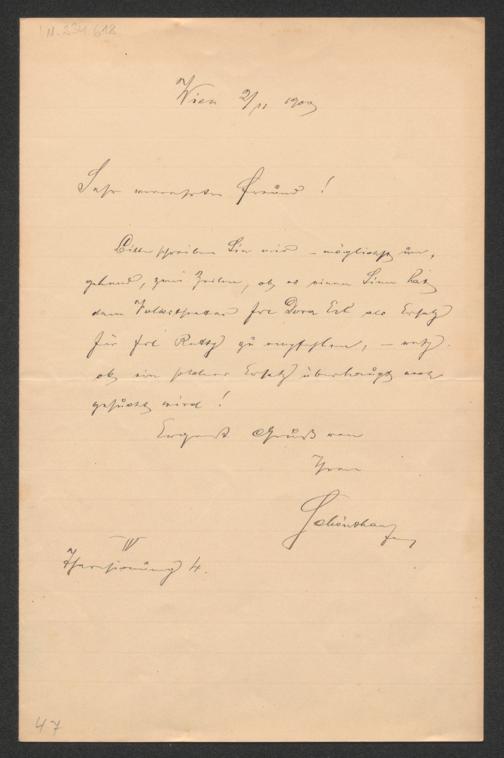 N. 234.618
Wien 2/11 1900
Sehr verehrter Freund!
Bitte schreiben Sie mir – möglichst um-
gehend, zwei Zeilen, ob es einen Sinn hat
dem Volkstheater Frl Dora Erl als Ersatz
für Frl Retty zu empfehlen, –
ob ein solcher Ersatz überhaupt noch
gesucht wird!
Ergebst Gruß von
Ihrem
Schönthan
IV
4.
47